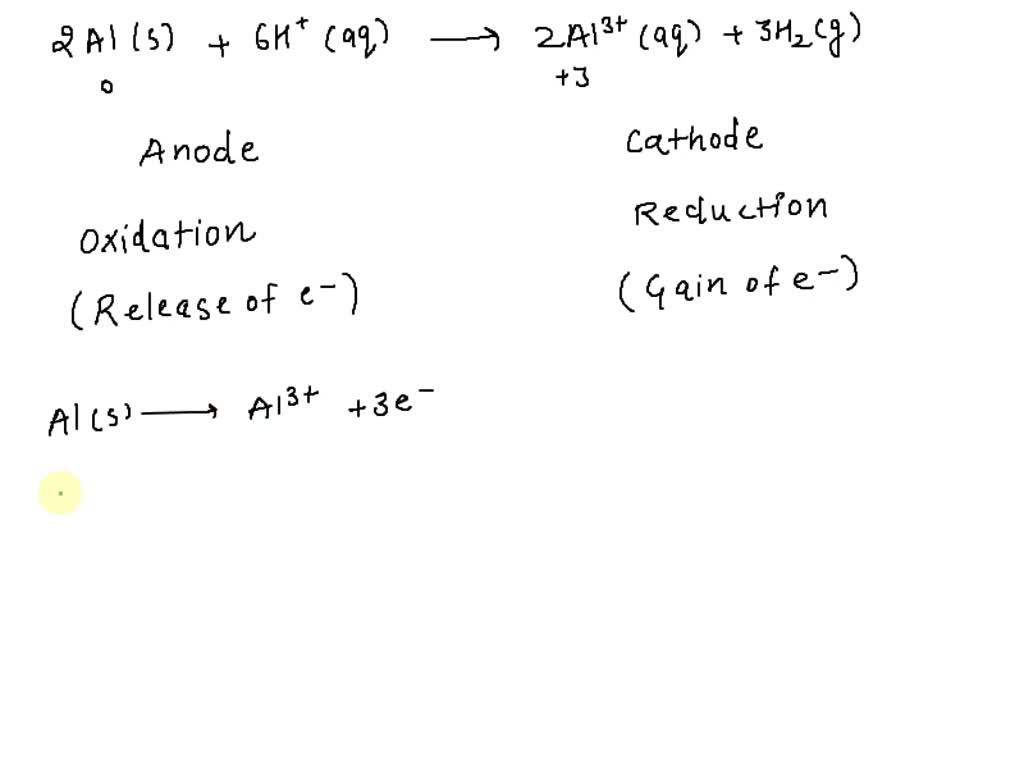 2Al(s) + 6H⁺(aq) ⟶ 2Al³⁺(aq) + 3H₂(g)
0 +3
Anode Cathode
Oxidation Reduction
(Release of e⁻) (Gain of e⁻)
Al(s) ⟶ Al³⁺ + 3e⁻